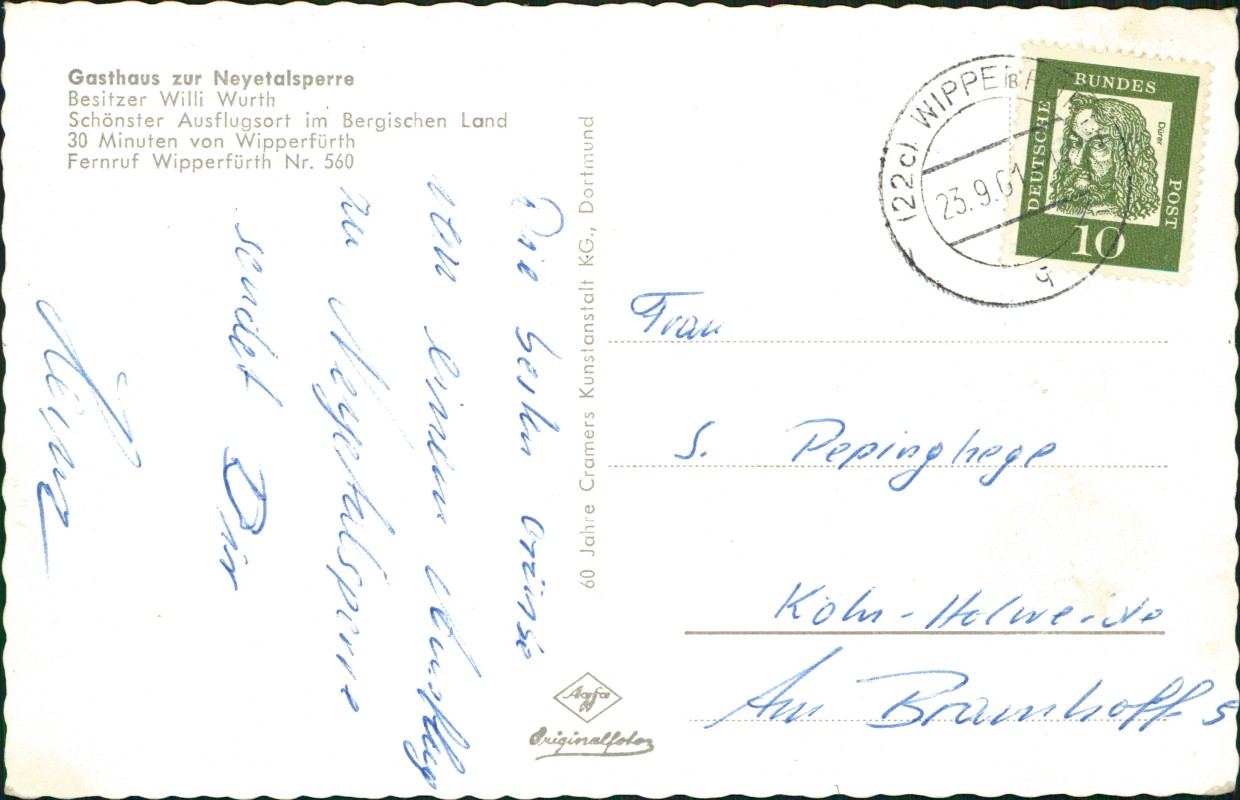 Gasthaus zur Neyetalsperre
Besitzer Willi Wurth
Schönster Ausflugsort im Bergischen Land
30 Minuten von Wipperfürth
Fernruf Wipperfürth Nr. 560
Die besten Grüße
von einem Ausflug
zu Neyetalsperre
sendet Dir
Heinz
60 Jahre Cramers Kunstanstalt KG., Dortmund
Agfa
Originalfoto
(22c) WIPPERFÜRTH
23.9.61
g
DEUTSCHE
BUNDES
POST
Dürer
10
Frau
S. Pepinghege
Köln-Holweide
Am Bramhoff 5